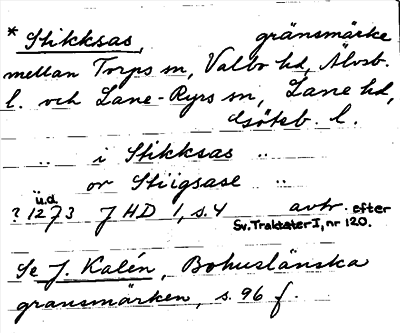 * Stikksas, gränsmärke
mellan Torps sn, Valbo hd, Älvsb.
l. och Lane-Ryrs sn, Lane hd,
Götsb. l.
„ i Stikksas „
or Stiigsase „
u.d.
? 1273 J HD 1, s. 4 avtr. efter
Sv. Traktater I, nr 120.
Se J. Kalén, Bohuslänska
gränsmärken, s. 96 f.